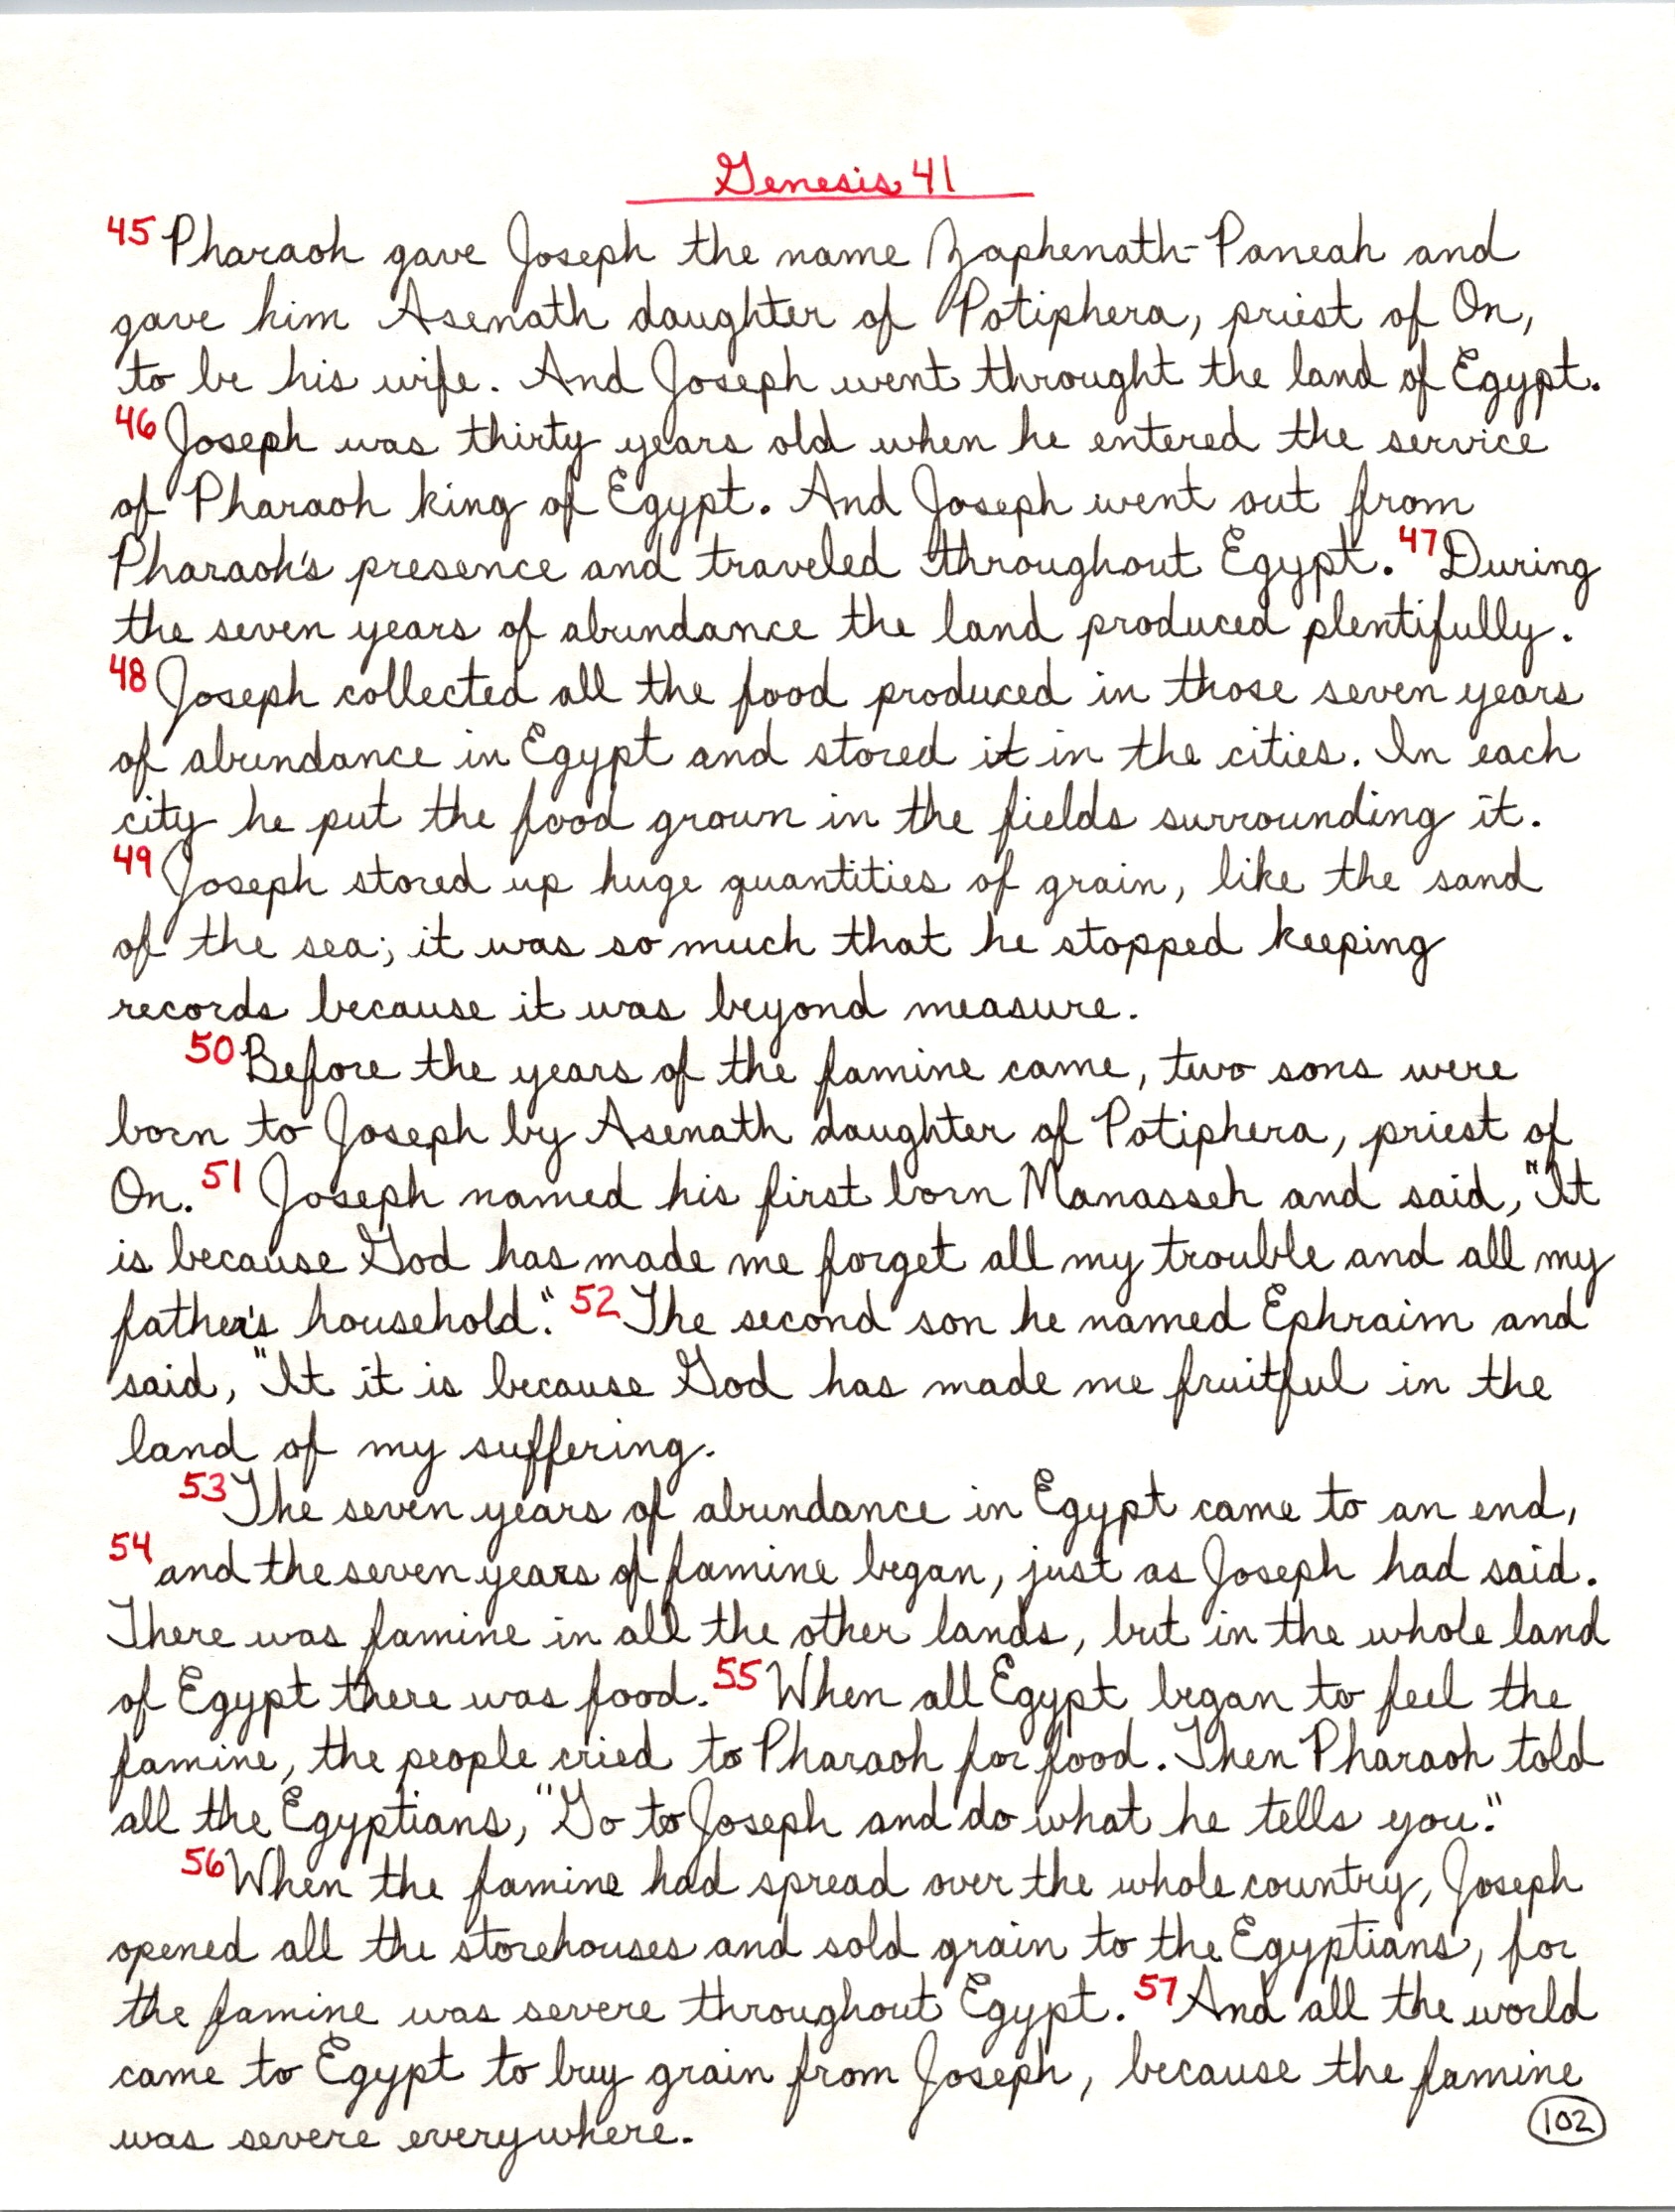 Genesis 41
45 Pharaoh gave Joseph the name Zaphenath-Paneah and
gave him Asenath daughter of Potiphera, priest of On,
to be his wife. And Joseph went throught the land of Egypt.
46 Joseph was thirty years old when he entered the service
of Pharaoh king of Egypt. And Joseph went out from
Pharaoh's presence and traveled throughout Egypt. 47 During
the seven years of abundance the land produced plentifully.
48 Joseph collected all the food produced in those seven years
of abundance in Egypt and stored it in the cities. In each
city he put the food grown in the fields surrounding it.
49 Joseph stored up huge quantities of grain, like the sand
of the sea; it was so much that he stopped keeping
records because it was beyond measure.
50 Before the years of the famine came, two sons were
born to Joseph by Asenath daughter of Potiphera, priest of
On. 51 Joseph named his first born Manasseh and said, "It
is because God has made me forget all my trouble and all my
father's household." 52 The second son he named Ephraim and
said, "It it is because God has made me fruitful in the
land of my suffering.
53 The seven years of abundance in Egypt came to an end,
54 and the seven years of famine began, just as Joseph had said.
There was famine in all the other lands, but in the whole land
of Egypt there was food. 55 When all Egypt began to feel the
famine, the people cried to Pharaoh for food. Then Pharaoh told
all the Egyptians, "Go to Joseph and do what he tells you."
56 When the famine had spread over the whole country, Joseph
opened all the storehouses and sold grain to the Egyptians, for
the famine was severe throughout Egypt. 57 And all the world
came to Egypt to buy grain from Joseph, because the famine
was severe everywhere.
102